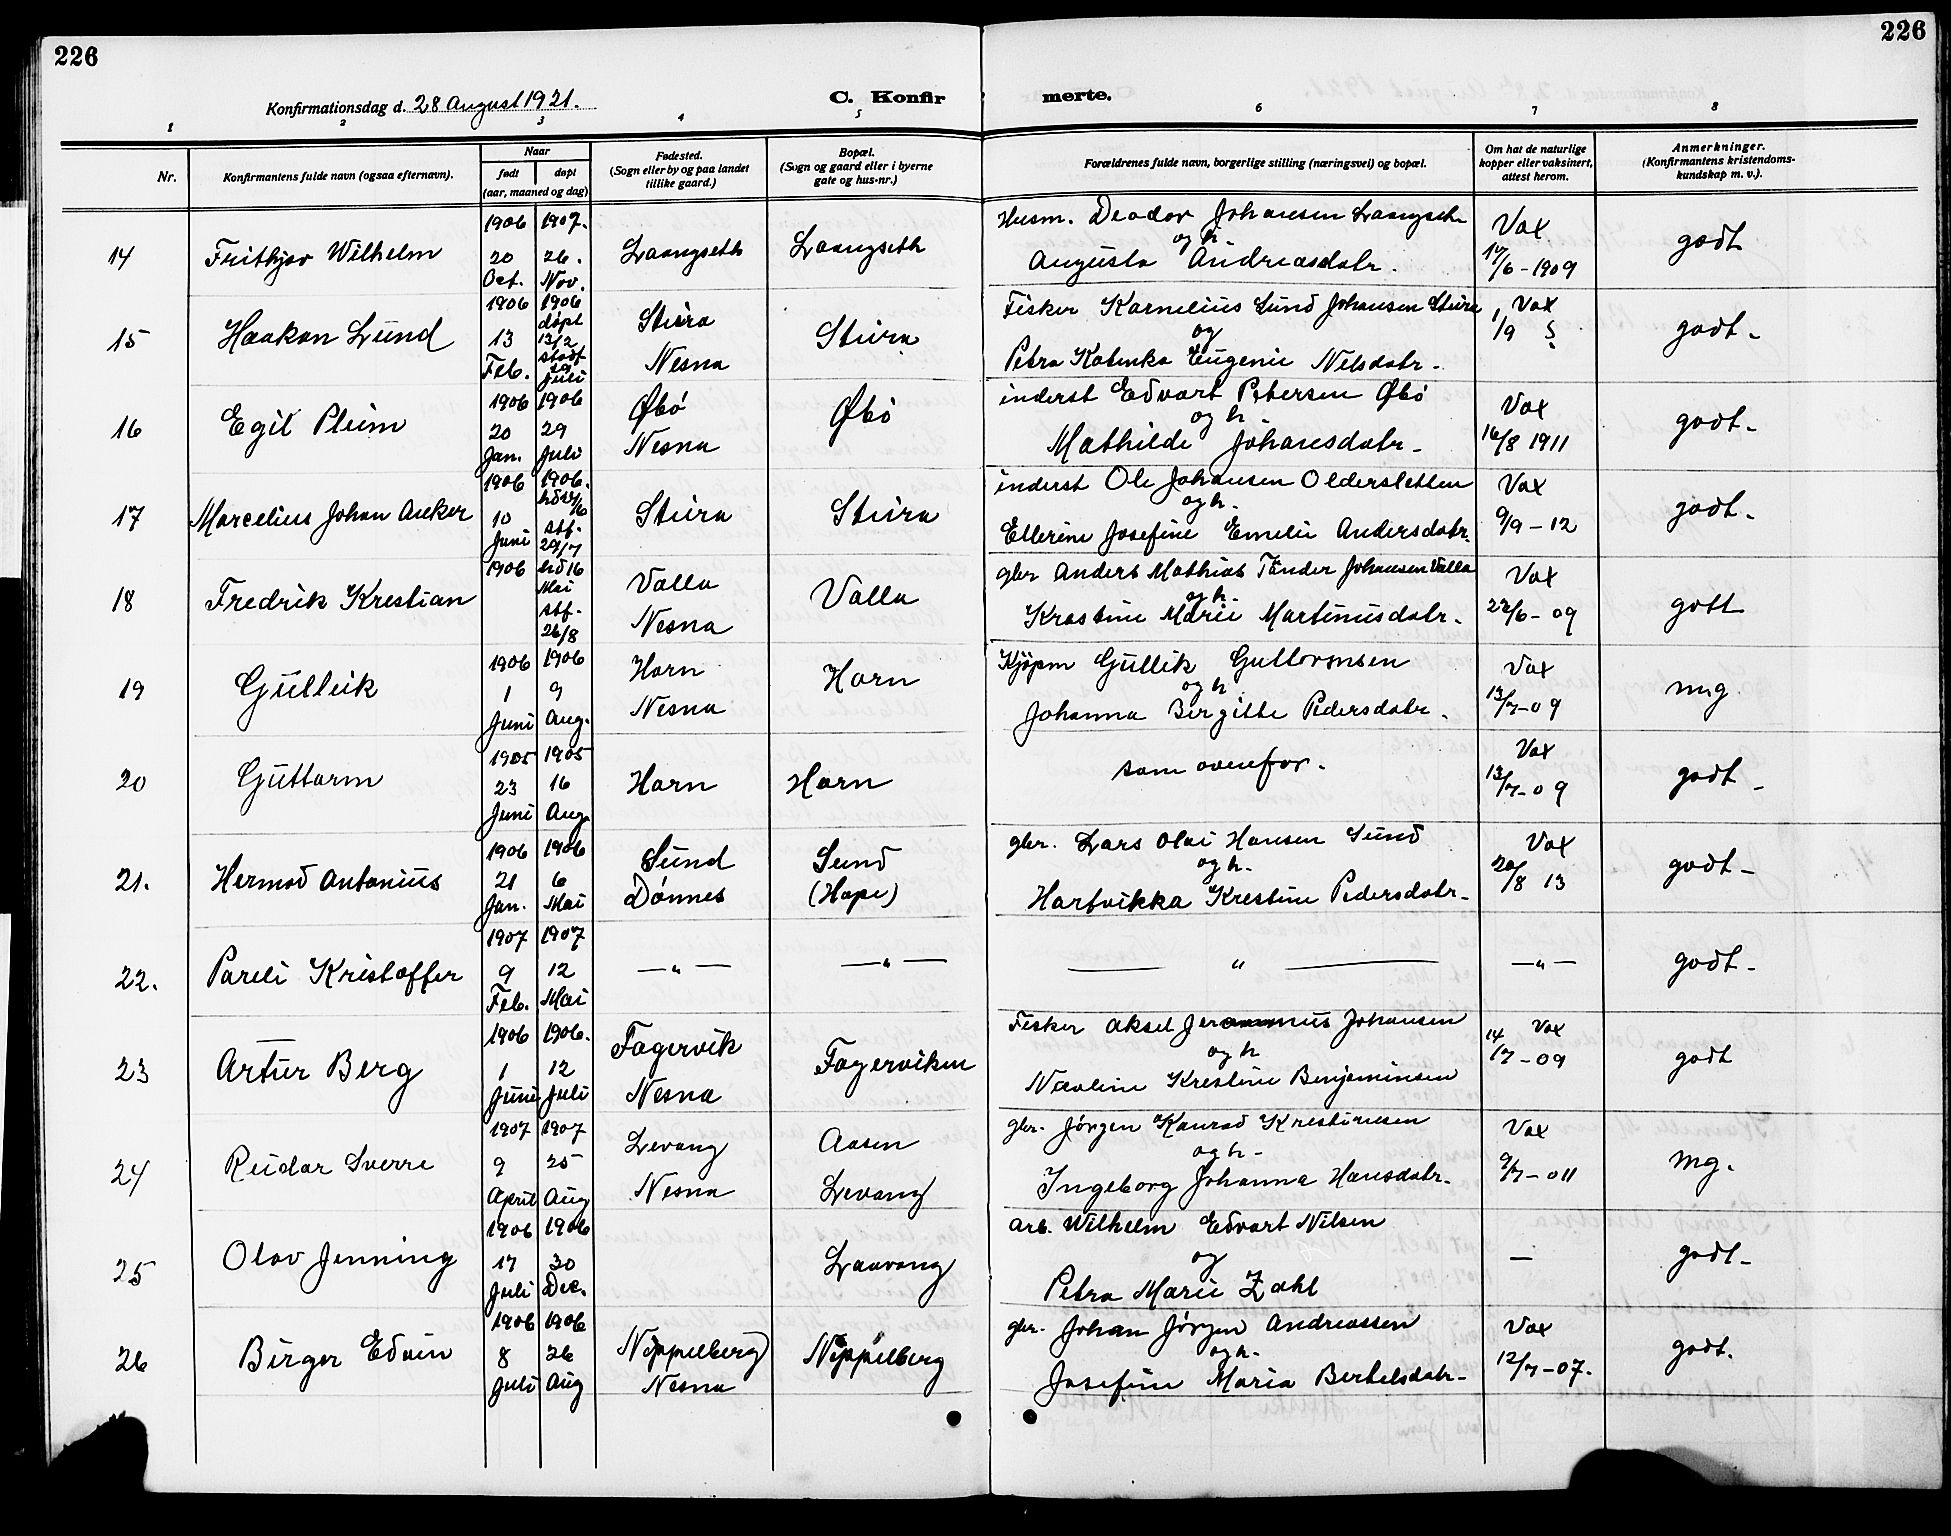 226
226
Konfirmationsdag d. 28 August 1921.
C. Konfirmerte.
1 2 3 4 5 6 7 8
Nr.
Konfirmantens fulde navn (ogsaa efternavn).
Naar
født
døpt
(aar, maaned og dag)
Fødested.
(Sogn eller by og paa landet
tillike gaard.)
Bopæl.
(Sogn og gaard eller i byerne
gate og hus-nr.)
Forældrenes fulde navn, borgerlige stilling (næringsvei) og bopæl.
Om hat de naturlige
kopper eller vaksinert,
attest herom.
Anmerkninger.
(Konfirmantens kristendoms-
kundskap m. v.).
14 Frithjov Wilhelm
1906 20 Oct.
1907. 26. Nov.
Laangseth
Laangseth
Husm. Deodor Johansen Laangseth
og h.
Augusta Andreasdatr.
Vax 17/6 - 1909
godt
15 Haakon Lund
1906 13 Feb.
1906 döpt 13/2 stadf. 29 Juli
Stuira Nesna
Stuira
Fisker Kornelius Lund Johansen Stuira
og
Petra Katinka Eugenie Nilsdatr.
Vax 1/9
godt.
16 Egil Pleim
1906 20 Jan.
1906 29 Juli
Øbö Nesna
Øbö
inderst Edvart Petersen Øbö
og h
Mathilde Johansdatr.
Vax 16/8 1911
godt.
17 Marcelius Johan Anker
1906 10 Juni
1906. stf. 29/7
Stuira
Stuira
inderst Ole Johansen Oldersletten
og h.
Ellerine Josefine Emelie Andersdatr.
Vax 9/9 - 12
godt.
18 Fredrik Krestian
1906
hd 16 Mai stf. 26/8
Valla Nesna
Valla
gbr Anders Mathias Tönder Johansen Valla
og h.
Krastine Marie Martinusdatr.
Vax 22/6 - 09
gott
19 Gullik
1906 1 Juni
1906 9 Aug.
Horn Nesna
Horn
Kjøpm Gullik Guttormsen
og h.
Johanna Bergitte Pedersdatr.
Vax 13/7 - 09
mg.
20 Guttorm
1905 23 Juni
1905 16 Aug.
Horn
Horn
som ovenfor.
Vax 13/7 - 09
godt.
21. Hermod Antonius
1906 21 Jan.
1906 6 Mai
Sund Dönnes
Sund (Hope)
gbr. Lars Olai Hansen Sund
og h.
Hartvikka Krestine Pedersdatr.
Vax 20/8 13
godt.
22. Pareli Kristoffer
1907 9 Feb.
1907 12 Mai
—"—
—"—
—"—
—"—
godt.
23 Artur Berg
1906 1 Juni
1906. 12 Juli
Fagervik Nesna
Fagerviken
Fisker Aksel Johansen
og h
Krestine Benjaminsen
Vax 14/7 - 09
godt
24 Reidar Sverre
1907 9 April
1907 25 Aug
Levang Nesna
Aasen Levang
gbr. Jörgen Konrad Krestinesen
og h.
Ingeborg Johanna Hansdatr.
Vax 9/7 - 011
mg.
25 Olav Jenning
1906 17 Juli
1906 30 Dec.
Laavong
arb. Wilhelm Edvart Nilsen
og
Petra Marie Zahl
—
godt.
26 Birger Edvin
1906 8 Juli
1906 26 Aug
Nippelberg Nesna
Nippelberg
gbr. Johan Jörgen Andreassen
og h.
Josefine Maria Bertelsdatr.
Vax 12/7 - 07.
godt.